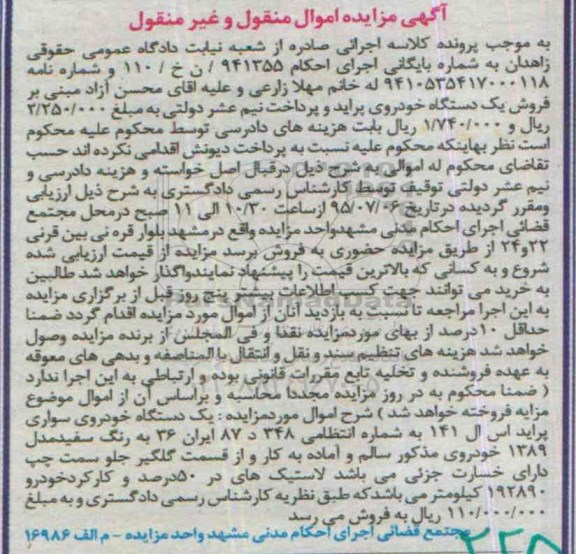 آگهی مزایده اموال منقول و غیر منقول
به موجب پرونده کلاسه اجرائی صادره از شعبه نیابت دادگاه عمومی حقوقی
زاهدان به شماره بایگانی اجرای احکام ۹۴۱۳۵۵ / ن خ / ۱۱۰ و شماره نامه
۹۴۱۰۵۳۵۴۱۷۰۰۰۱۱۸ له خانم مهلا زارعی و علیه اقای محسن آزاد مبنی بر
فروش یک دستگاه خودروی پراید و پرداخت نیم عشر دولتی به مبلغ ۲/۲۵۰/۰۰۰
ریال و ۱/۷۴۰/۰۰۰ ریال بابت هزینه های دادرسی توسط محکوم علیه محکوم
است نظر بهاینکه محکوم علیه نسبت به پرداخت دیونش اقدامی نکرده اند حسب
تقاضای محکوم له اموالی به شرح ذیل درقبال اصل خواسته و هزینه دادرسی و
نیم عشر دولتی توقیف توسط کارشناس رسمی دادگستری به شرح ذیل ارزیابی
ومقرر گردیده درتاریخ ۹۵/۰۷/۰۶ ازساعت ۱۰/۳۰ الی ۱۱ صبح درمحل مجتمع
قضائی اجرای احکام مدنی مشهدواحد مزایده واقع درمشهد بلوار قره نی بین قرنی
۲۲و۲۴ از طریق مزایده حضوری به فروش برسد مزایده از قیمت ارزیابی شده
شروع و به کسانی که بالاترین قیمت را پیشنهاد نمایندواگذار خواهد شد طالبین
به خرید می توانند جهت کسب اطلاعات بیشتر پنج روز قبل از برگزاری مزایده
به این اجرا مراجعه تا نسبت به بازدید آنان از اموال مورد مزایده اقدام گردد ضمنا
حداقل ۱۰درصد از بهای موردمزایده نقدا و فی المجلس از برنده مزایده وصول
خواهد شد هزینه های تنظیم سند و نقل و انتقال بالمناصفه و بدهی های معوقه
به عهده فروشنده و تخلیه تابع مقررات قانونی بوده و ارتباطی به این اجرا ندارد
( ضمنا محکوم به در روز مزایده مجددا محاسبه و براساس آن از اموال موضوع
مزایه فروخته خواهد شد ) شرح اموال موردمزایده : یک دستگاه خودروی سواری
پراید اس ال ۱۴۱ به شماره انتظامی ۳۴۸ د ۸۷ ایران ۳۶ به رنگ سفیدمدل
۱۳۸۹ خودروی مذکور سالم و آماده به کار و از قسمت گلگیر جلو سمت چپ
دارای خسارت جزئی می باشد لاستیک های در ۵۰درصد و کارکردخودرو
۱۹۲۸۹۰ کیلومتر می باشد که طبق نظریه کارشناس رسمی دادگستری و به مبلغ
۱۱۰/۰۰۰/۰۰۰ ریال به فروش می رسد
مجتمع قضائی اجرای احکام مدنی مشهد واحد مزایده - م الف ۱۶۹۸۶